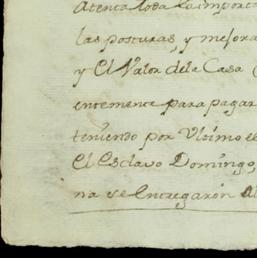 atenta toda la import
las posturas, y mejora
y el Valor dela Casa
entemente para pagar
teniendo por Ultimo e
el Esclavo Domingo,
na se entregaron al